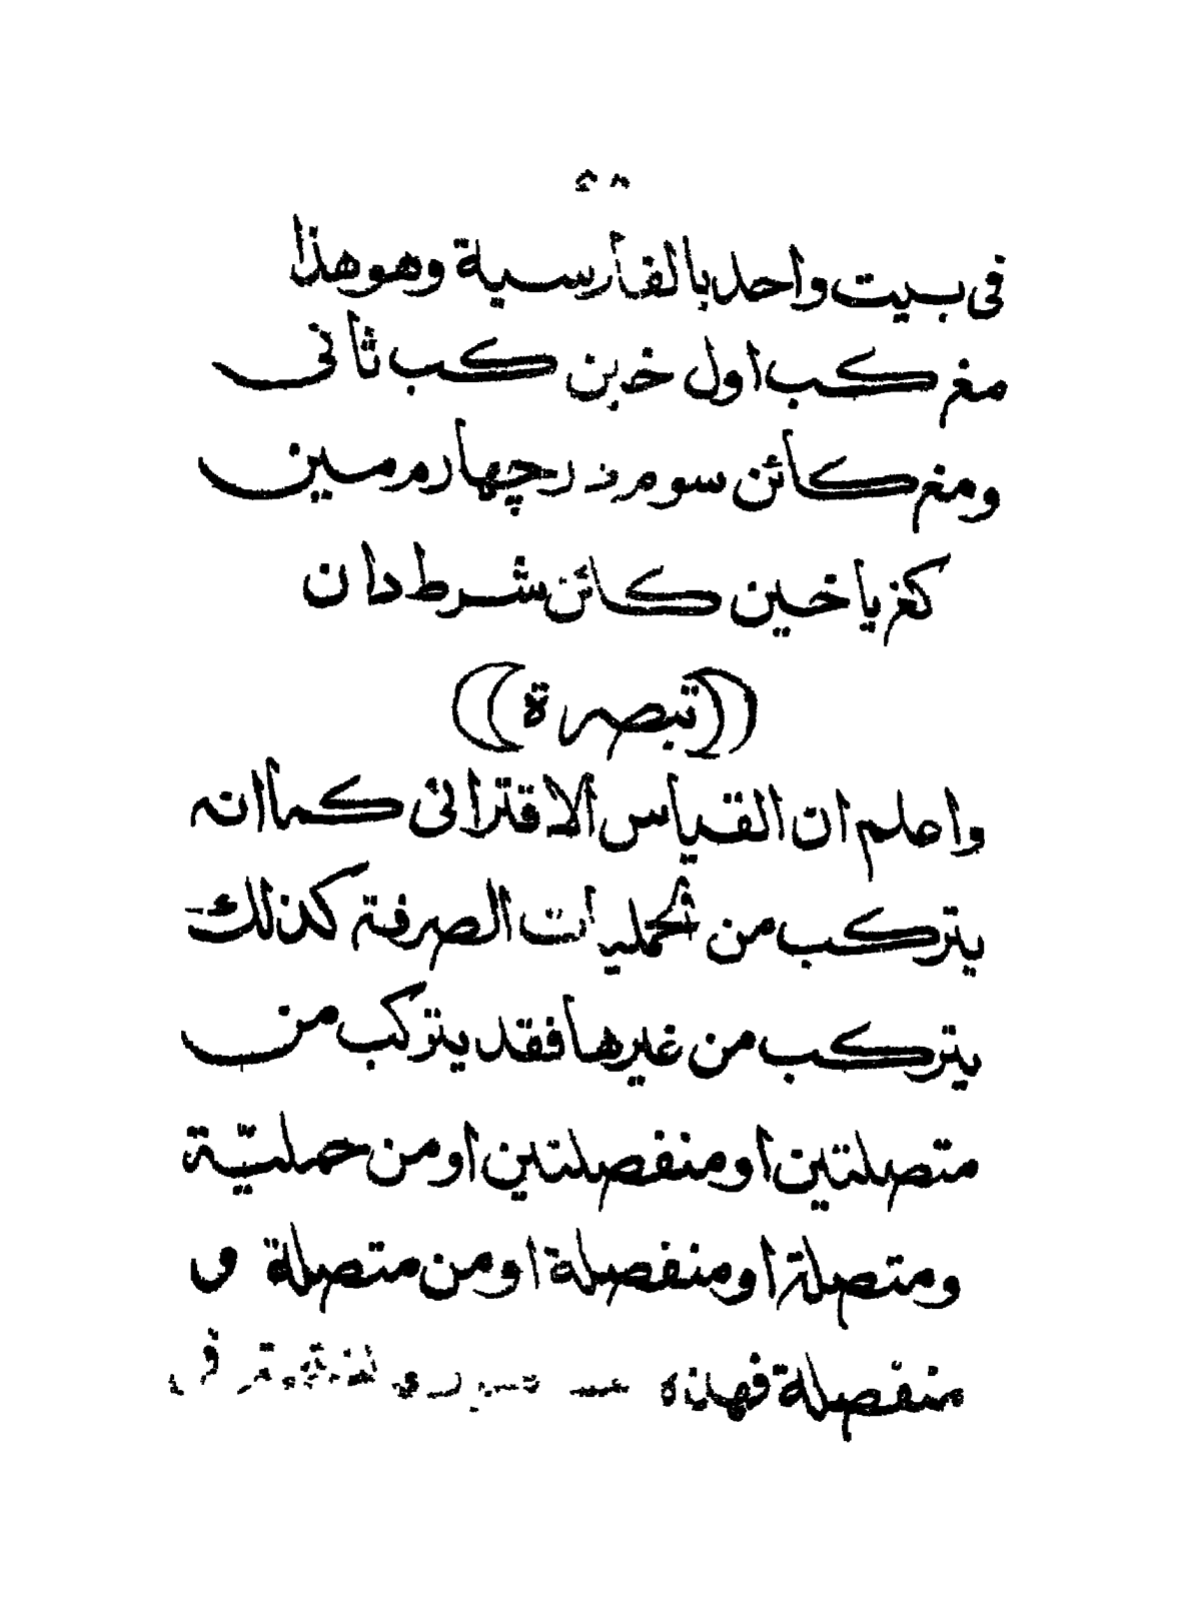 فى بيت واحد بالفأرسية وهو هذا
مغ كب اول خ بن كب ثانى
ومغ كائن سوم در چهارم مين
كغ يا خين كائن شرط دان
((تبصرة))
واعلم ان القياس الاقترانى كما انه
يتركب من الحمليات الصرفة كذلك
يتركب من غيرها فقد يتركب من
متصلتين او منفصلتين او من حمليّة
ومتصلة او منفصلة او من متصلة و
منفصلة فهذه